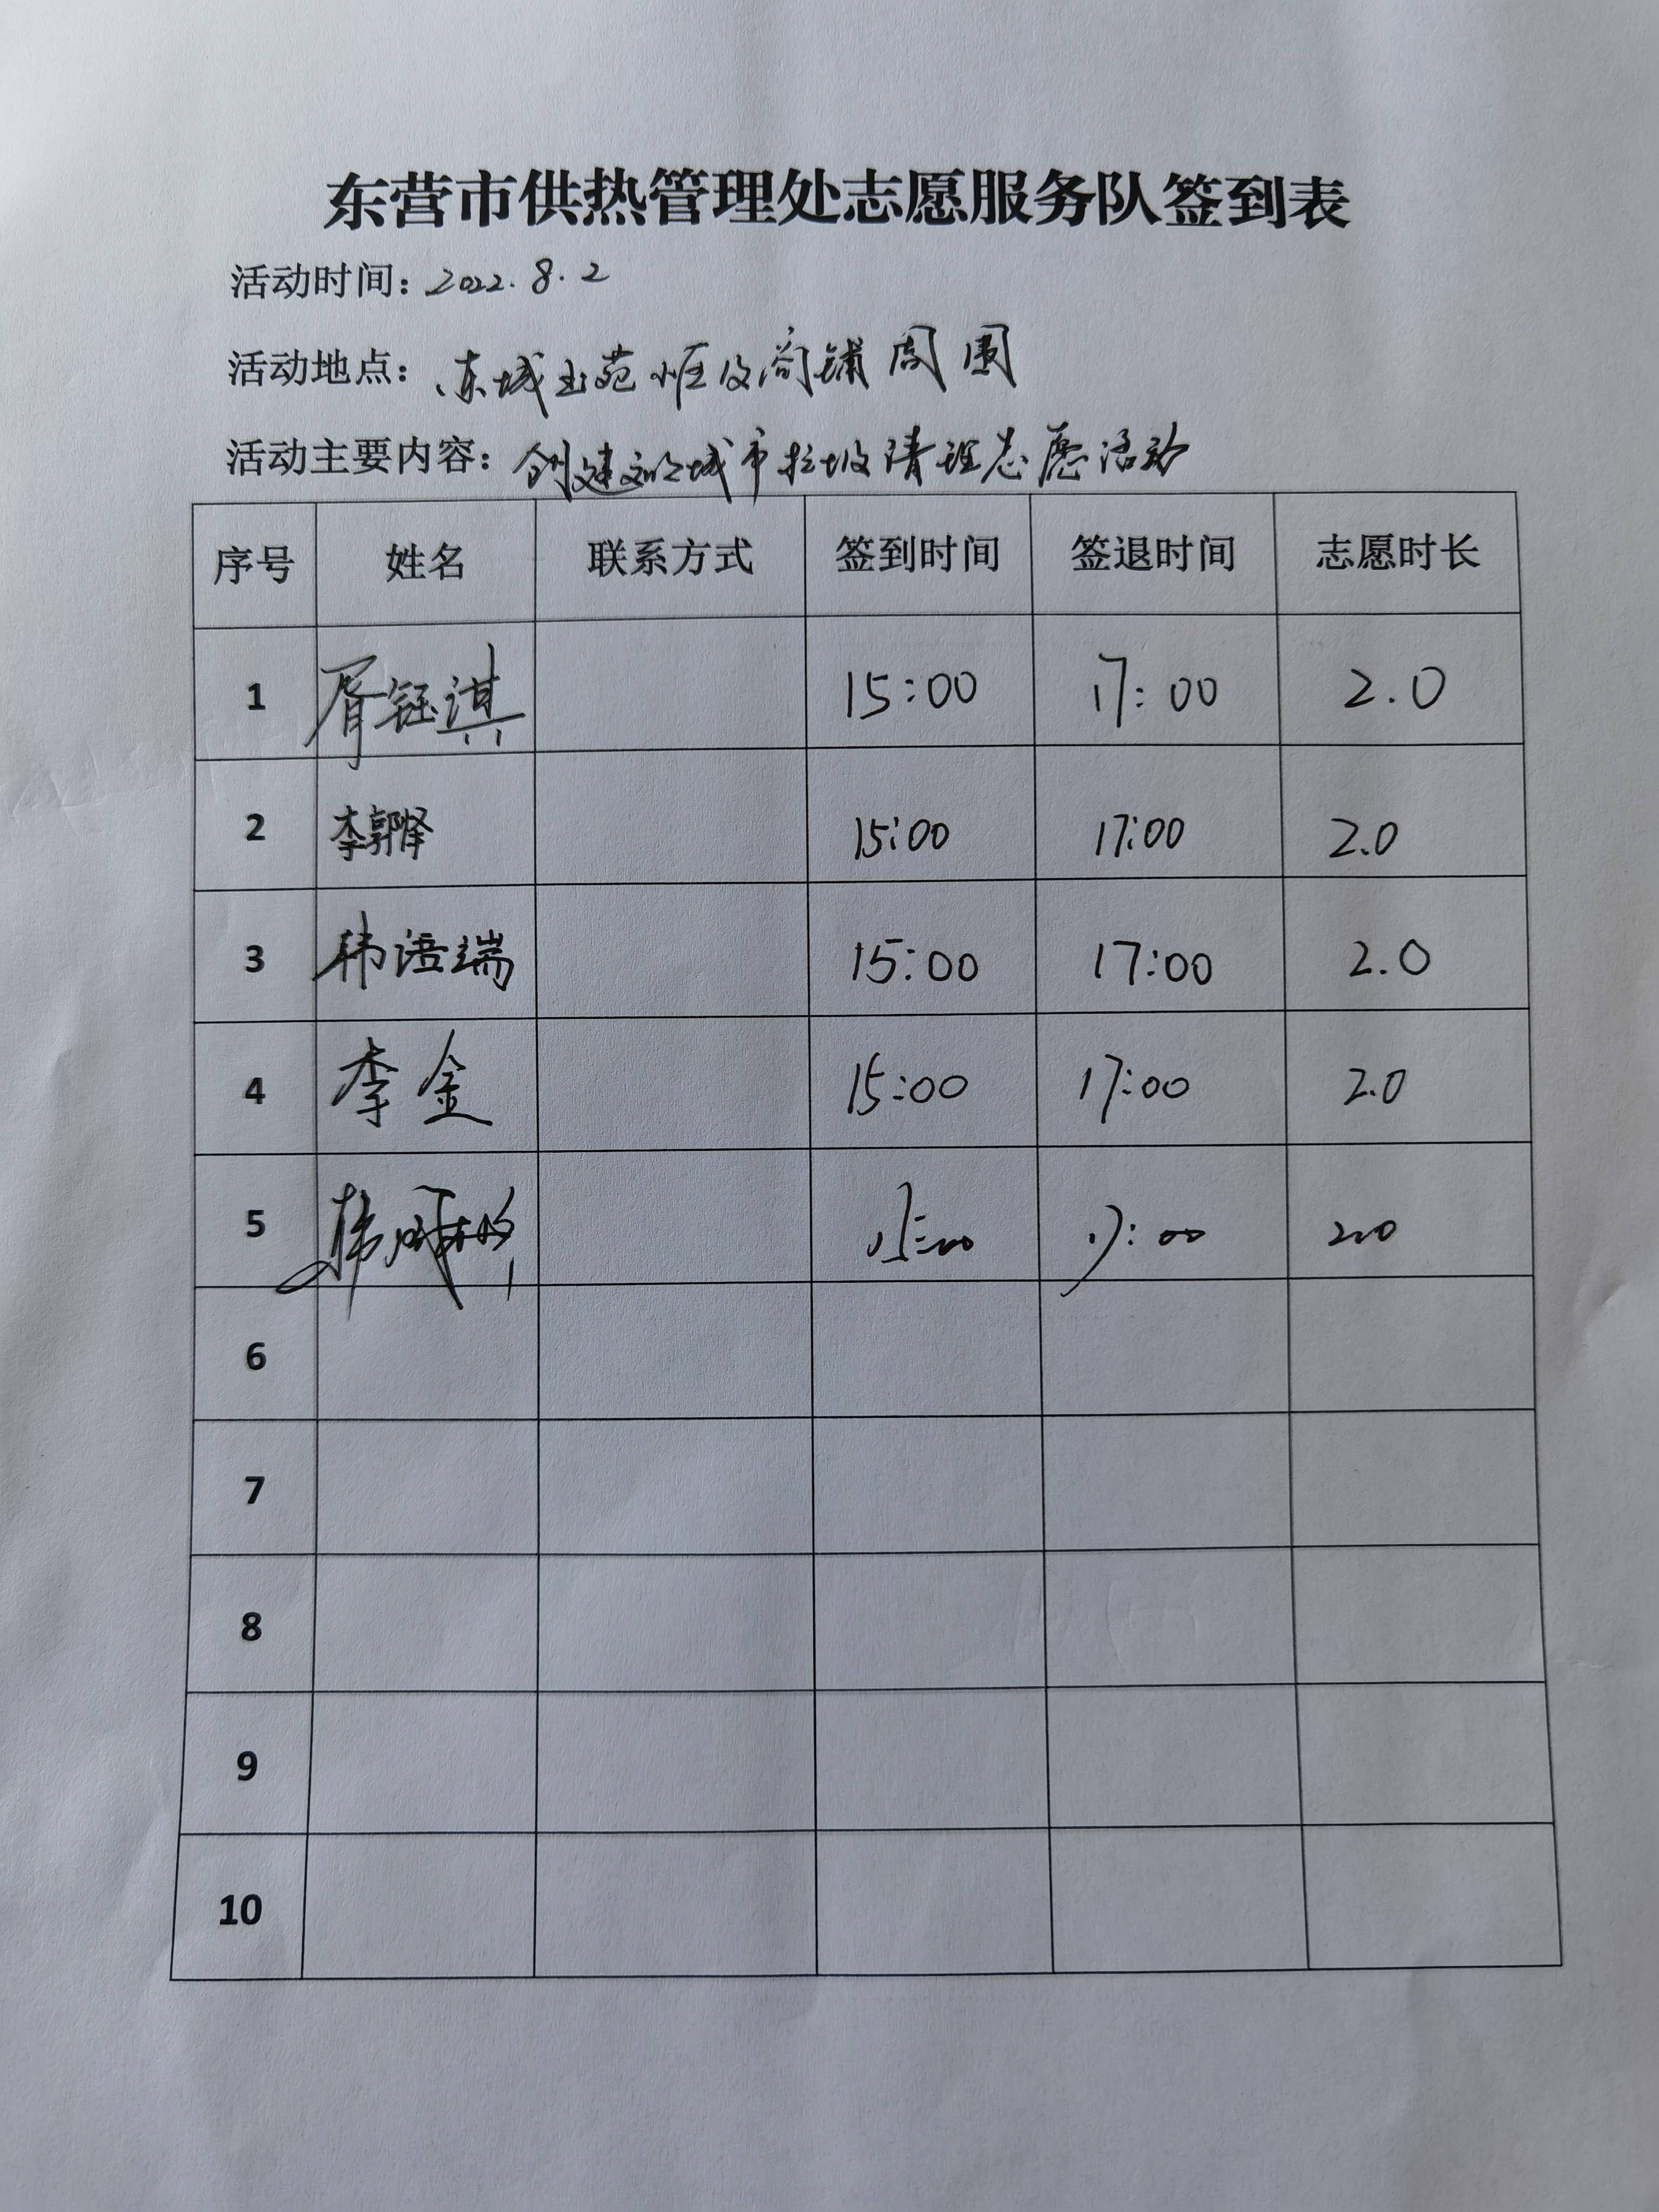 东营市供热管理处志愿服务队签到表
活动时间：2022.8.2
活动地点：东城玉苑小区及商铺周围
活动主要内容：创建文明城市垃圾清理志愿活动
序号 姓名 联系方式 签到时间 签退时间 志愿时长
1 胥钰淇 15:00 17:00 2.0
2 李郭泽 15:00 17:00 2.0
3 韩语端 15:00 17:00 2.0
4 李金 15:00 17:00 2.0
5 15:00 17:00 2.0
6
7
8
9
10